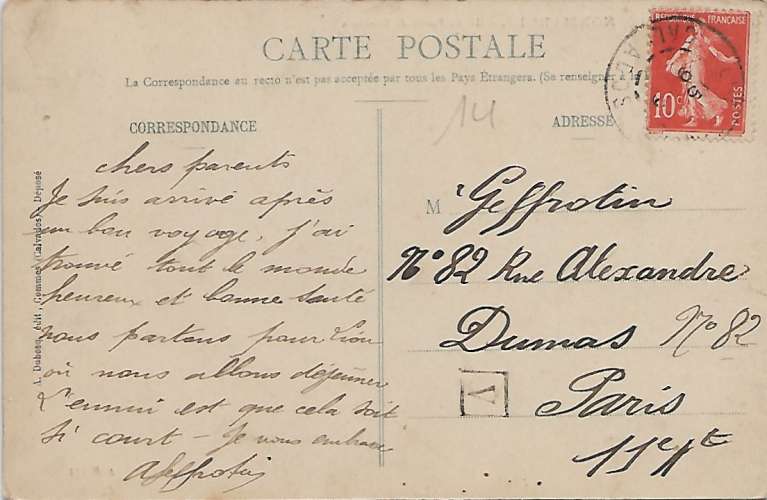 CARTE POSTALE
La Correspondance au recto n'est pas acceptée par tous les Pays Étrangers. (Se renseigner à la
14
CORRESPONDANCE
chers parents
Je suis arrivé après
un bon voyage, j'ai
trouvé tout le monde
heureux et bonne santé
nous partons pour Lion
où nous allons déjeuner
L'ennui est que cela soit
si court - Je vous embrasse
AGeffrotin
ADRESSE
M Geffrotin
N° 82 Rue Alexandre
Dumas N° 82
Paris
11e At
A
RÉPUBLIQUE FRANÇAISE
10 c
POSTES
CALVADOS
édit., Commes (Calvados) - Déposé